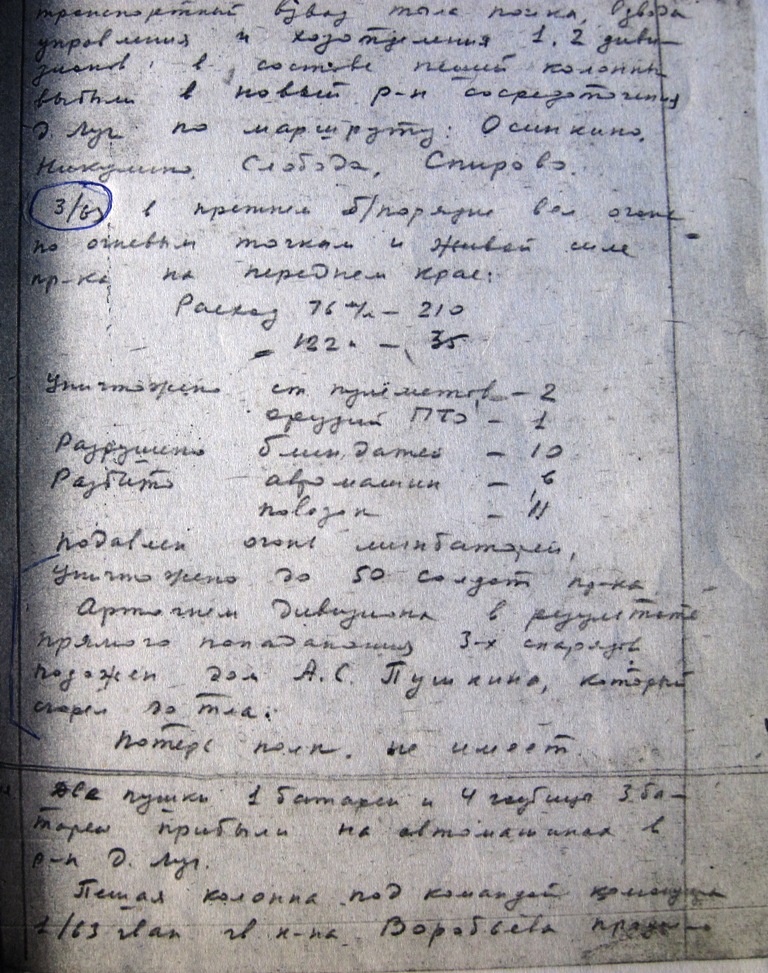 транспортный взвод тыла полка, взвода
управления и хозотделения 1, 2 диви-
зионов в составе пешей колонны
выбыли в новый р-н сосредоточения
д. Луг по маршруту: Осинкино,
Никулино, Слобода, Спирово.
3/63 в прежнем б/порядке вел огонь
по огневым точкам и живой силе
пр-ка на переднем крае:
Расход 76 м/м – 210
122 " – 35
Уничтожено ст. пулеметов – 2
орудий ПТО – 1
Разрушено блиндажей – 10
Разбито автомашин – 6
повозок – 11
Подавлен огонь минбатареи,
Уничтожено до 50 солдат пр-ка
Артогнем дивизиона в результате
прямого попадания 3-х снарядов
подожжен дом А.С. Пушкина, который
сгорел до тла.
Потерь полк не имеет.
Две пушки 1 батареи и 4 гаубицы 3 ба-
тареи прибыли на автомашинах в
р-н д. Луг.
Пешая колонна под командой
1/63 гв. к-на Воробьева